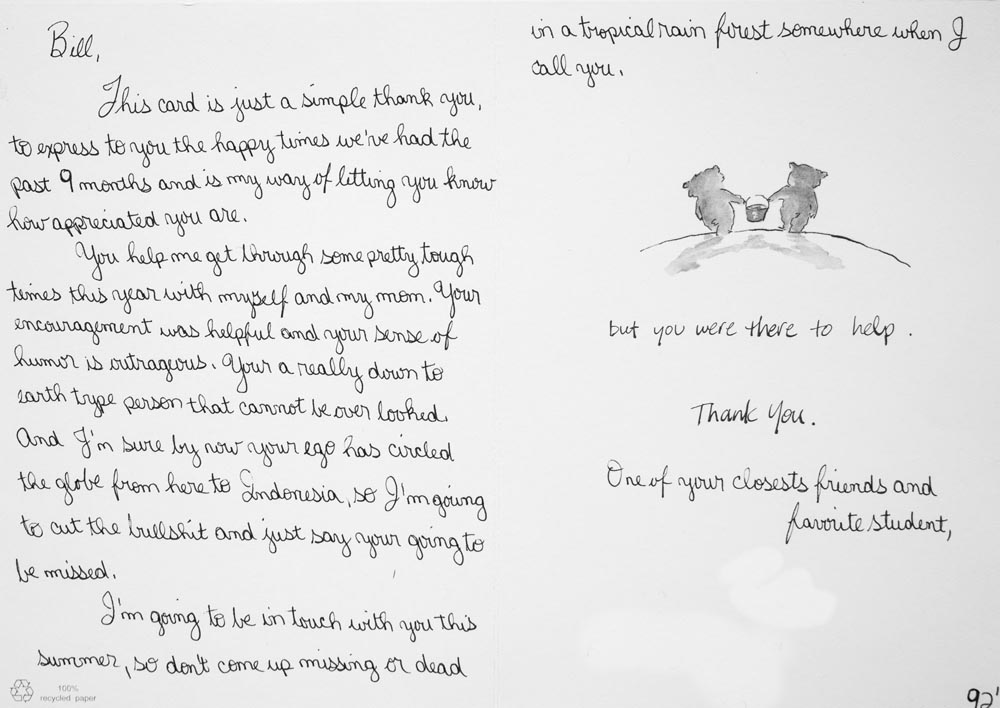 Bill,
This card is just a simple thank you,
to express to you the happy times we've had the
past 9 months and is my way of litting you know
how appreciated you are.
You help me get through some pretty tough
times this year with myself and my mom. Your
encouragement was helpful and your sense of
humor is outrageous. Your a really down to
earth type person that cannot be over looked.
And I'm sure by now your ego has circled
the globe from here to Indonesia, so I'm going
to cut the bullshit and just say your going to
be missed.
I'm going to be in touch with you this
summer, so don't come up missing or dead
100%
recycled paper
in a tropical rain forest somewhere when I
call you.
but you were there to help.
Thank You.
One of your closests friends and
favorite student,
92'